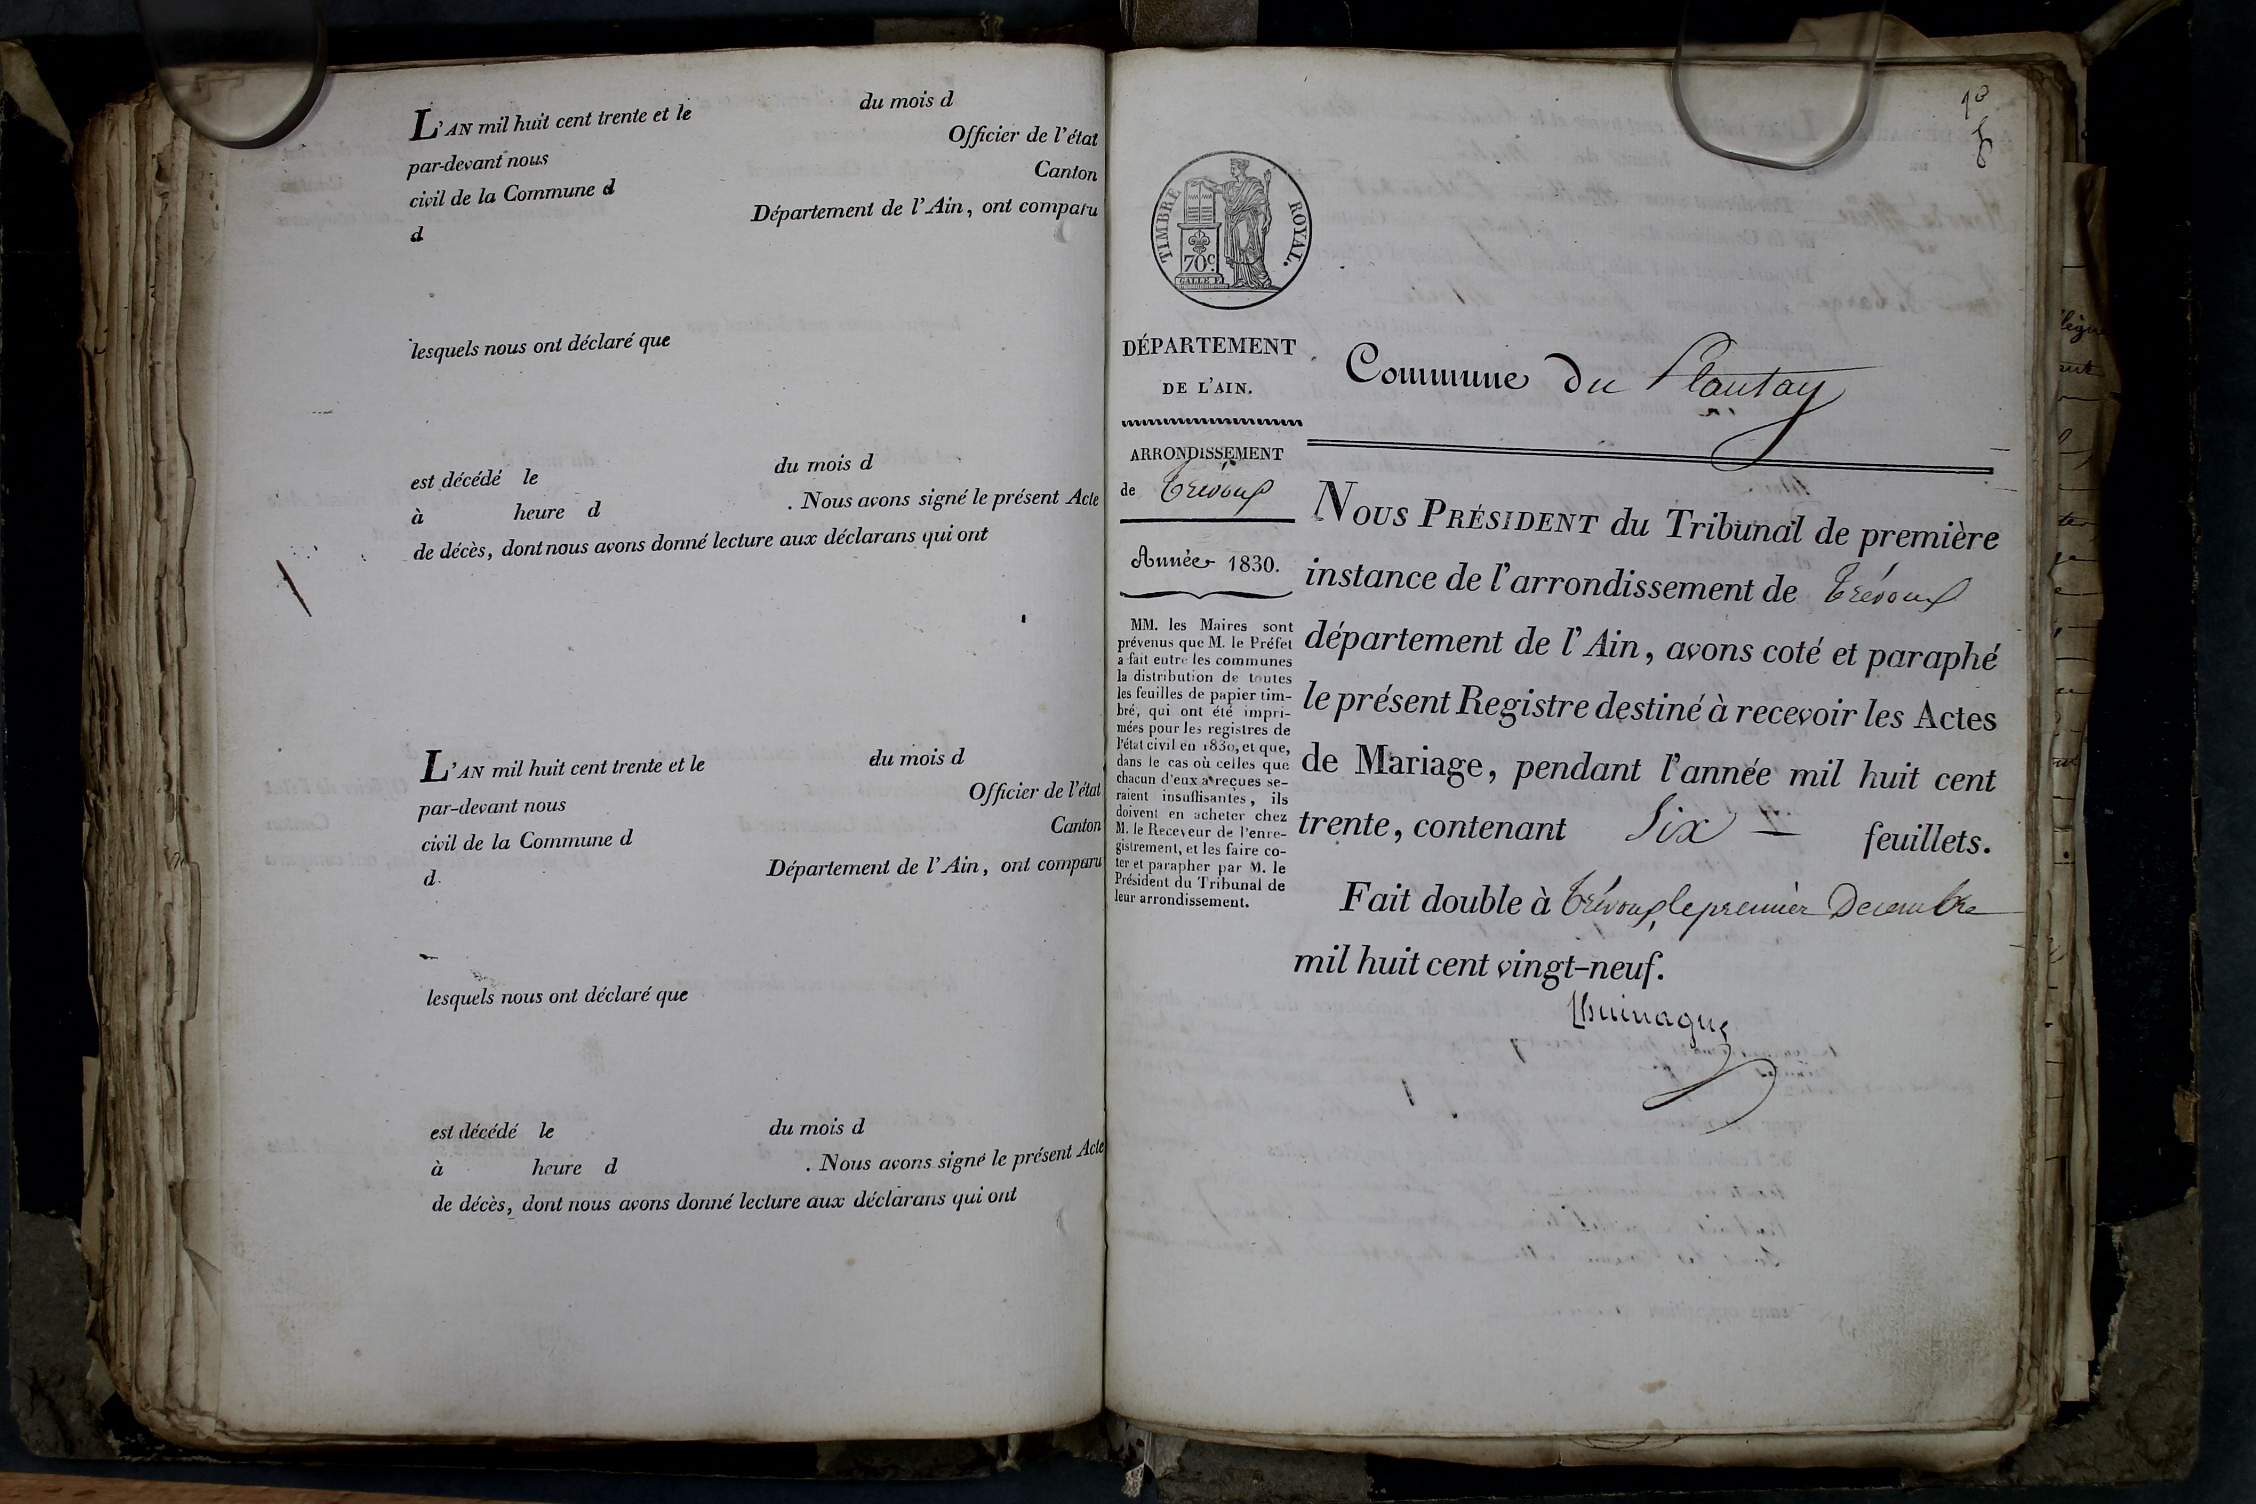 L'AN mil huit cent trente et le du mois d
par-devant nous Officier de l'état
civil de la Commune d Canton
d Département de l'Ain, ont comparu
lesquels nous ont déclaré que
est décédé le du mois d
à heure d . Nous avons signé le présent Acte
de décès, dont nous avons donné lecture aux déclarans qui ont
L'AN mil huit cent trente et le du mois d
par-devant nous Officier de l'état
civil de la Commune d Canton
d. Département de l'Ain, ont comparu
lesquels nous ont déclaré que
est décédé le du mois d
à heure d . Nous avons signé le présent Acte
de décès, dont nous avons donné lecture aux déclarans qui ont
TIMBRE ROYAL.
70c.
DÉPARTEMENT
DE L'AIN.
ARRONDISSEMENT
de Trévoux
Année 1830.
MM. les Maires sont
prévenus que M. le Préfet
a fait entre les communes
la distribution de toutes
les feuilles de papier tim-
bré, qui ont été impri-
mées pour les registres de
l'état civil en 1830, et que,
dans le cas où celles que
chacun d'eux a reçues se-
raient insuffisantes, ils
doivent en acheter chez
M. le Receveur de l'enre-
gistrement, et les faire co-
ter et parapher par M. le
Président du Tribunal de
leur arrondissement.
Commune du Plantay
NOUS PRÉSIDENT du Tribunal de première
instance de l'arrondissement de Trévoux
département de l'Ain, avons coté et paraphé
le présent Registre destiné à recevoir les Actes
de Mariage, pendant l'année mil huit cent
trente, contenant Six feuillets.
Fait double à Trévoux, le premier Decembre
mil huit cent vingt-neuf.